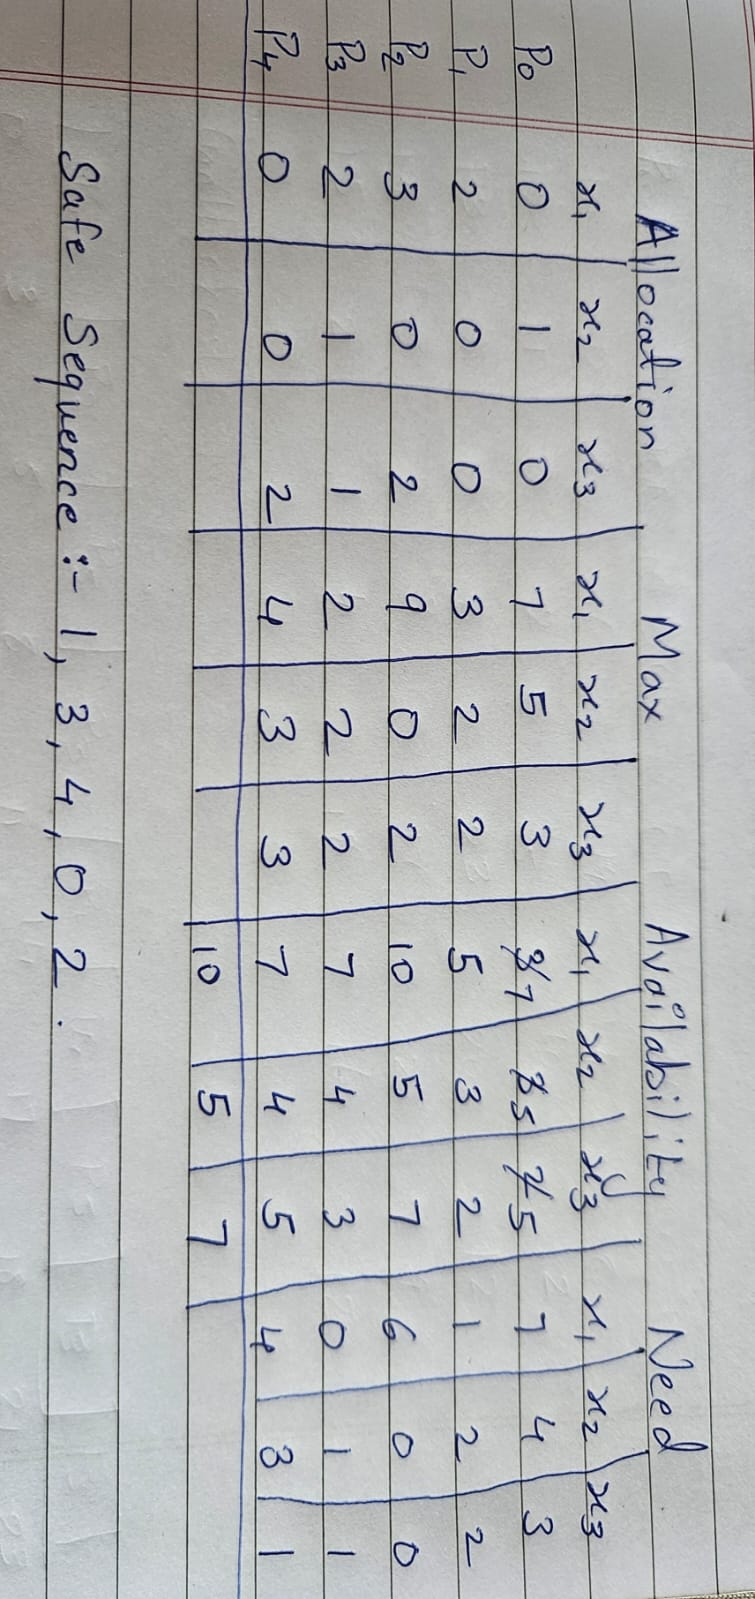 Allocation Max Availability Need
x1 x2 x3 x1 x2 x3 x1 x2 x3 x1 x2 x3
P0 0 1 0 7 5 3 7 5 5 7 4 3
P1 2 0 0 3 2 2 5 3 2 1 2 2
P2 3 0 2 9 0 2 10 5 7 6 0 0
P3 2 1 1 2 2 2 7 4 3 0 1 1
P4 0 0 2 4 3 3 7 4 5 4 3 1
10 5 7
Safe Sequence :- 1, 3, 4, 0, 2.